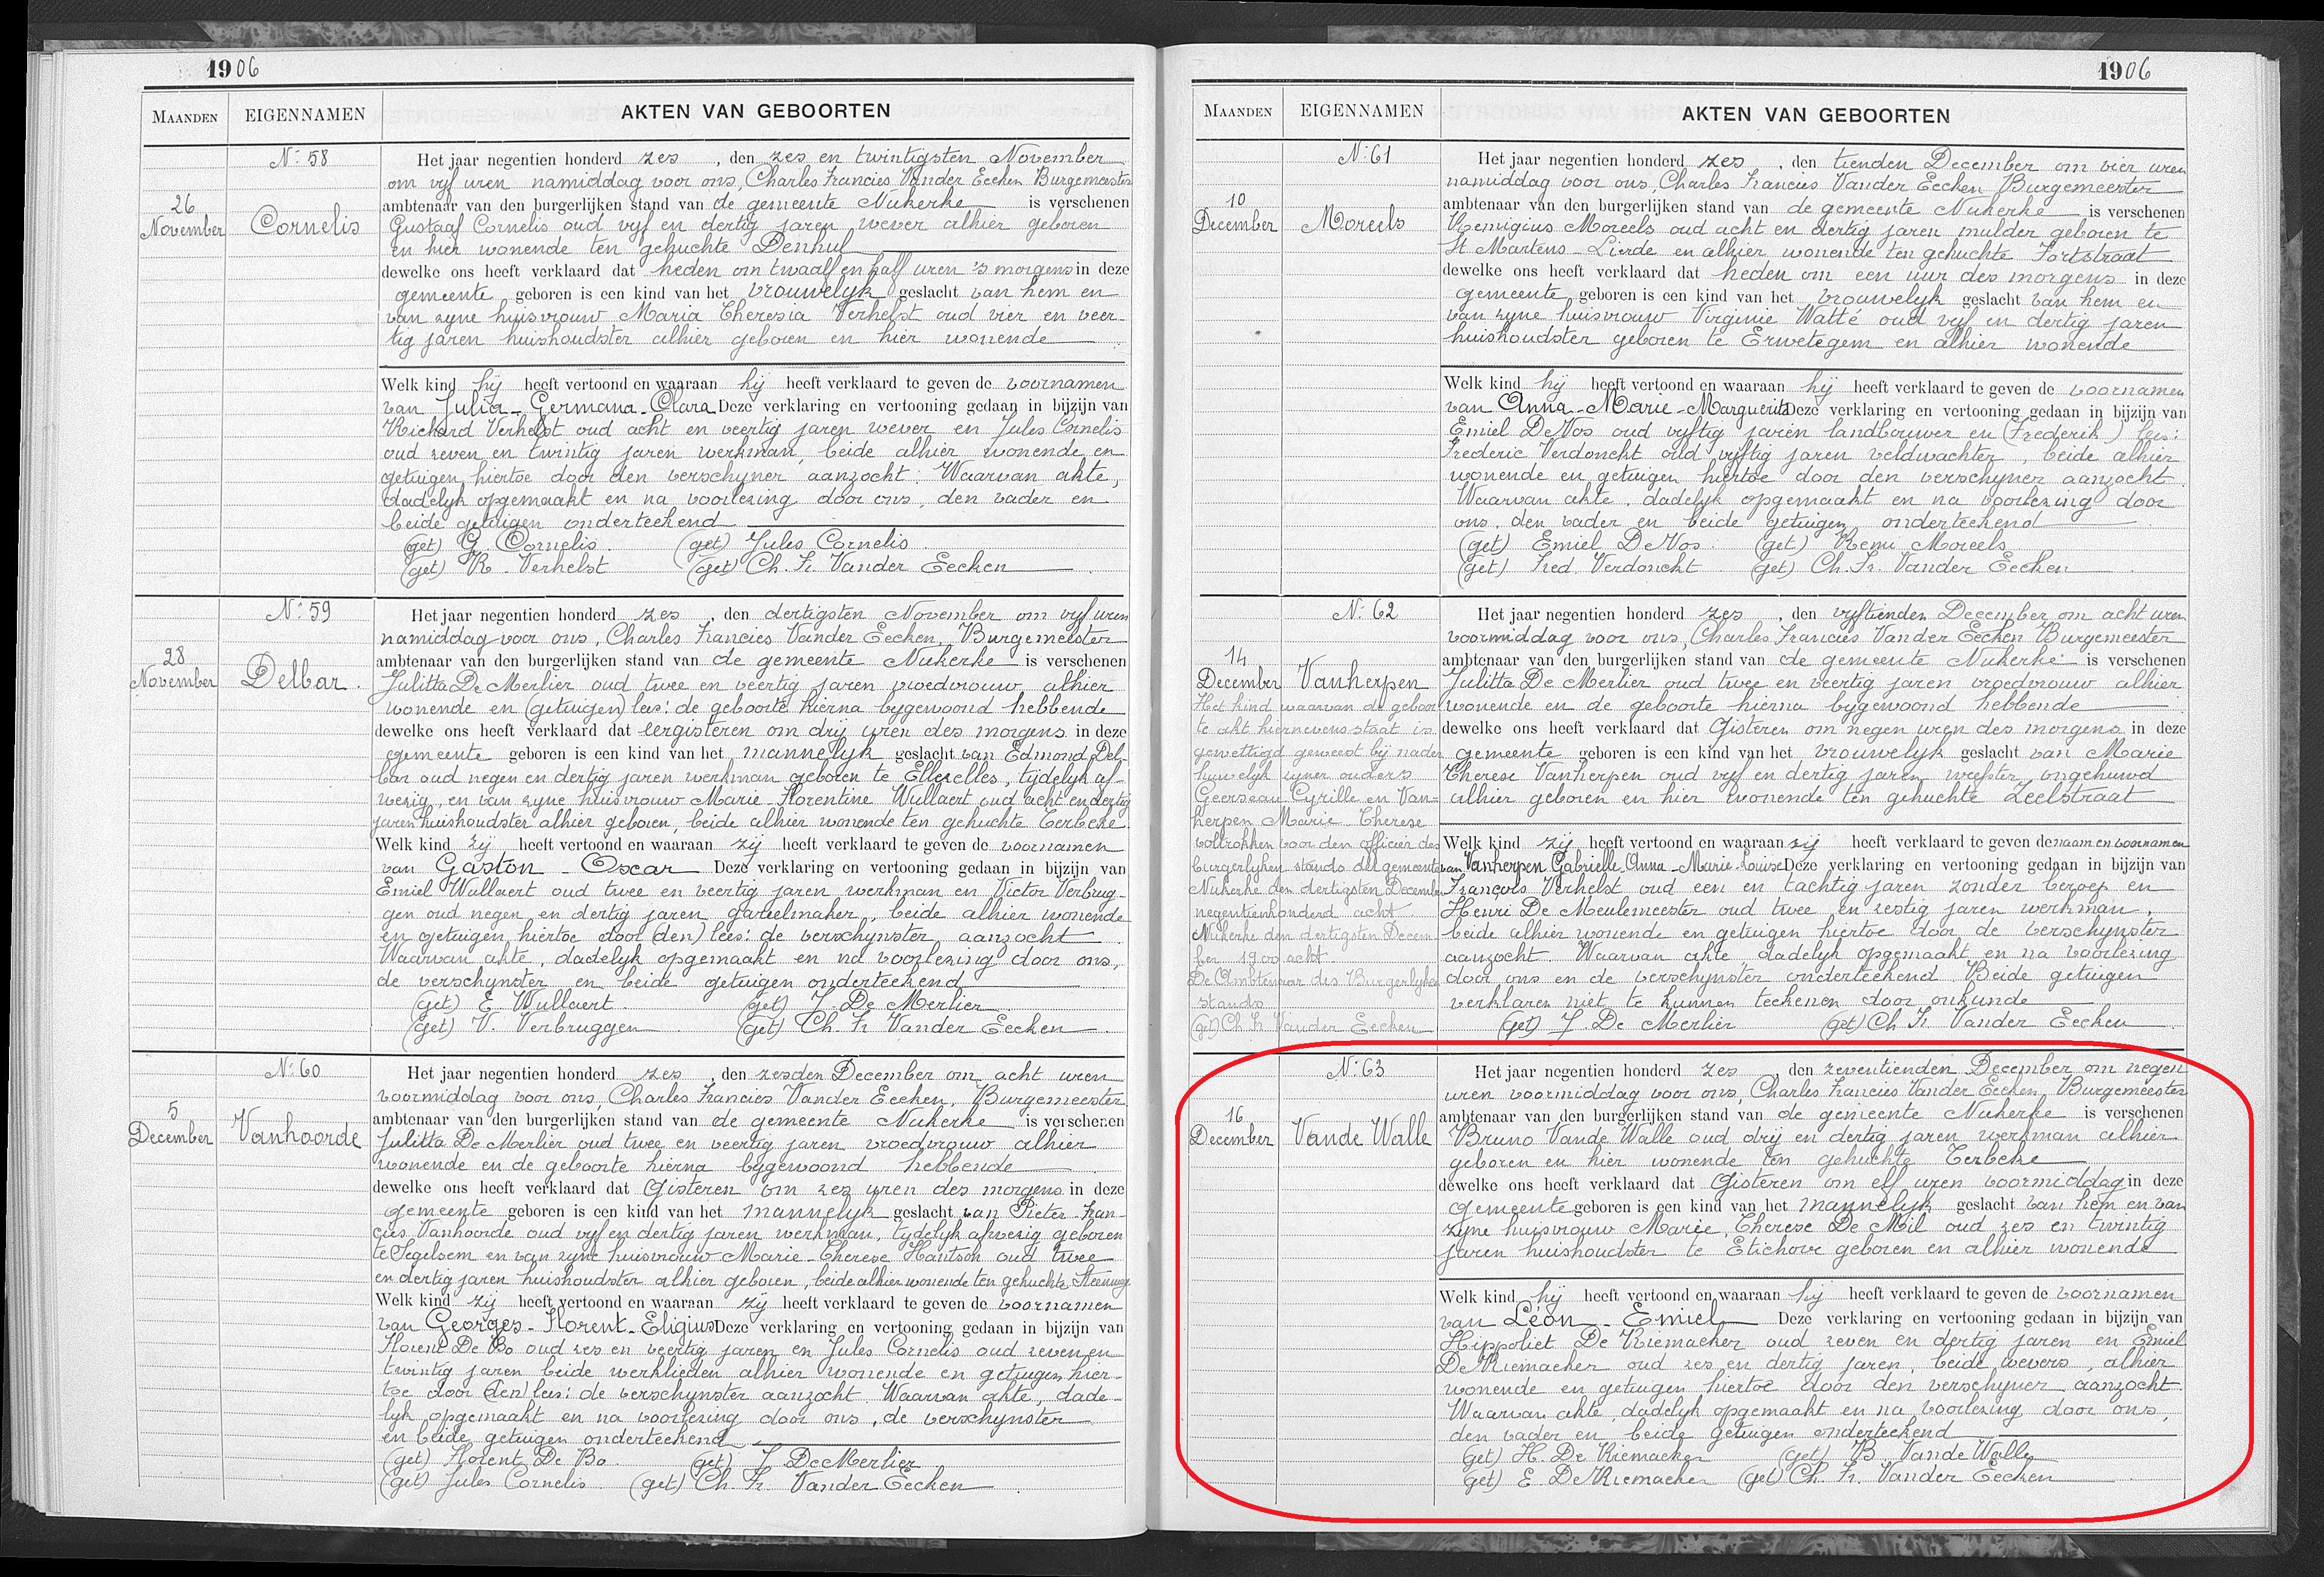 1906
MAANDEN EIGENNAMEN AKTEN VAN GEBOORTEN
26 November
N: 58
Cornelis
Het jaar negentien honderd zes, den zes en twintigsten November
om vijf uren namiddag voor ons, Charles Francies Vander Eecken Burgemeester
ambtenaar van den burgerlijken stand van de gemeente Nukerke is verschenen
Gustaaf Cornelis oud vijf en dertig jaren wever alhier geboren
en hier wonende ten gehuchte Denhul
dewelke ons heeft verklaard dat heden om twaalf en half uren 's morgens in deze
gemeente geboren is een kind van het vrouwelyk geslacht van hem en
van zyne huisvrouw Maria Theresia Verhelst oud vier en veer-
tig jaren huishoudster alhier geboren en hier wonende
Welk kind hij heeft vertoond en waaraan hij heeft verklaard te geven de voornamen
van Julia-Germana-Clara Deze verklaring en vertooning gedaan in bijzijn van
Richard Verhelst oud acht en veertig jaren wever en Jules Cornelis
oud zeven en twintig jaren werkman, beide alhier wonende en
getuigen hiertoe door den verschyner aanzocht. Waarvan akte,
dadelyk opgemaakt en na voorlezing door ons, den vader en
beide getuigen onderteekend
(get) G. Cornelis (get) Jules Cornelis
(get) R. Verhelst (get) Ch. Fr. Vander Eecken
28 November
N: 59
Delbar.
Het jaar negentien honderd zes, den dertigsten November om vyf uren
namiddag voor ons, Charles Francies Vander Eecken, Burgemeester
ambtenaar van den burgerlijken stand van de gemeente Nukerke is verschenen
Julitta De Merlier oud twee en veertig jaren vroedvrouw alhier
wonende en (getuigen) lees: de geboorte hierna bygewoond hebbende
dewelke ons heeft verklaard dat eergisteren om drij uren des morgens in deze
gemeente geboren is een kind van het mannelyk geslacht van Edmond Del-
bar oud negen en dertig jaren werkman geboren te Ellezelles, tijdelyk af-
wezig, en van zyne huisvrouw Marie-Florentine Wullaert oud acht en dertig
jaren huishoudster alhier geboren, beide alhier wonende ten gehuchte Terbeke.
Welk kind zij heeft vertoond en waaraan zij heeft verklaard te geven de voornamen
van Gaston - Oscar Deze verklaring en vertooning gedaan in bijzijn van
Emiel Wullaert oud twee en veertig jaren werkman en Victor Verbrug-
gen oud negen en dertig jaren gareelmaker, beide alhier wonende
en getuigen hiertoe door (den) lees: de verschynster aanzocht
Waarvan akte, dadelyk opgemaakt en na voorlezing door ons,
de verschynster en beide getuigen onderteekend
(get) E. Wullaert. (get) J. De Merlier
(get) V. Verbruggen (get) Ch. Fr Vander Eecken
5 December
N: 60
Vanhoorde
Het jaar negentien honderd zes, den zesden December om acht uren
voormiddag voor ons, Charles Francies Vander Eecken, Burgemeester
ambtenaar van den burgerlijken stand van de gemeente Nukerke is verschenen
Julitta De Merlier oud twee en veertig jaren vroedvrouw alhier
wonende en de geboorte hierna bygewoond hebbende
dewelke ons heeft verklaard dat Gisteren om zes uren des morgens in deze
gemeente geboren is een kind van het mannelyk geslacht van Pieter-Fran-
cies Vanhoorde oud vyf en dertig jaren werkman, tydelyk afwezig geboren
te Segelsem en van zyne huisvrouw Marie-Therese Hantson oud twee
en dertig jaren huishoudster alhier geboren, beide alhier wonende ten gehuchte
Welk kind zij heeft vertoond en waaraan zij heeft verklaard te geven de voornamen
van Georges-Florent-Eligius Deze verklaring en vertooning gedaan in bijzijn van
Florent De Bo oud zes en veertig jaren en Jules Cornelis oud zeven en
twintig jaren beide werklieden alhier wonende en getuigen hier-
toe door (den) lees: de verschynster aanzocht. Waarvan akte, dade-
lyk opgemaakt en na voorlezing door ons, de verschynster
en beide getuigen onderteekend
(get) Florent De Bo. (get) J. De Merlier
(get) Jules Cornelis (get) Ch. Fr. Vander Eecken
1906
MAANDEN EIGENNAMEN AKTEN VAN GEBOORTEN
10 December
N: 61
Moreels
Het jaar negentien honderd zes, den tienden December om vier uren
namiddag voor ons, Charles Francies Vander Eecken Burgemeester
ambtenaar van den burgerlijken stand van de gemeente Nukerke is verschenen
Remigius Moreels oud acht en dertig jaren mulder geboren te
St Martens-Lierde en alhier wonende ten gehuchte Fortstraat
dewelke ons heeft verklaard dat heden om een uur des morgens in deze
gemeente geboren is een kind van het vrouwelyk geslacht van hem en
van zyne huisvrouw Virginie Watté oud vyf en dertig jaren
huishoudster geboren te Erwetegem en alhier wonende
Welk kind hij heeft vertoond en waaraan hij heeft verklaard te geven de voornamen
van Anna-Marie-Margueritz Deze verklaring en vertooning gedaan in bijzijn van
Emiel De Vos oud vyftig jaren landbouwer en (Frederik) lees:
Frederic Verdonckt oud vyftig jaren veldwachter, beide alhier
wonende en getuigen hiertoe door den verschyner aanzocht
Waarvan akte, dadelyk opgemaakt en na voorlezing door
ons, den vader en beide getuigen onderteekend
(get) Emiel De Vos. (get) Remi Moreels
(get) Fred. Verdonckt (get) Ch. Fr. Vander Eecken
14 December
N: 62
Vanherpen
Het kind waarvan de geboor
te akt hiernevens staat is
gewettigd geweest bij nader
huwelyk zyner ouders
Geerseau Cyrille en Van-
herpen Marie Therese
voltrokken voor den officier des
burgerlyken stands der gemeente
Nukerke den dertigsten December
negentienhonderd acht.
Nukerke den dertigsten Decem-
ber 1900 acht.
De Ambtenaar des Burgerlyken
stands
(get) Ch. Fr. Vander Eecken
Het jaar negentien honderd zes, den vyftienden December om acht uren
voormiddag voor ons, Charles Francies Vander Eecken Burgemeester
ambtenaar van den burgerlijken stand van de gemeente Nukerke is verschenen
Julitta De Merlier oud twee en veertig jaren vroedvrouw alhier
wonende en de geboorte hierna bygewoond hebbende
dewelke ons heeft verklaard dat Gisteren om negen uren des morgens in deze
gemeente geboren is een kind van het vrouwelyk geslacht van Marie
Therese Vanherpen oud vyf en dertig jaren weefster, ongehuwd
alhier geboren en hier wonende ten gehuchte Zeelstraat
Welk kind zij heeft vertoond en waaraan zij heeft verklaard te geven de naam en voornamen
van Vanherpen Gabrielle-Anna-Marie-Louise Deze verklaring en vertooning gedaan in bijzijn van
François Verhelst oud een en tachtig jaren zonder beroep en
Henri De Meulemeester oud twee en zestig jaren werkman,
beide alhier wonende en getuigen hiertoe door de verschynster
aanzocht Waarvan akte, dadelyk opgemaakt en na voorlezing
door ons en de verschynster onderteekend. Beide getuigen
verklaren niet te kunnen teekenen door onkunde
(get) J. De Merlier (get) Ch Fr. Vander Eecken
16 December
N: 63
Vande Walle
Het jaar negentien honderd zes, den zeventienden December om negen
uren voormiddag voor ons, Charles Francies Vander Eecken, Burgemeester
ambtenaar van den burgerlijken stand van de gemeente Nukerke is verschenen
Bruno Vande Walle oud drij en dertig jaren werkman alhier
geboren en hier wonende ten gehuchte Terbeke
dewelke ons heeft verklaard dat Gisteren om elf uren voormiddag in deze
gemeente geboren is een kind van het mannelyk geslacht van hem en van
zyne huisvrouw Marie, Therese De Mil oud zes en twintig
jaren huishoudster te Etichove geboren en alhier wonende
Welk kind hij heeft vertoond en waaraan hij heeft verklaard te geven de voornamen
van Léon - Emiel Deze verklaring en vertooning gedaan in bijzijn van
Hippoliet De Riemacker oud zeven en dertig jaren en Emiel
De Riemacker oud zes en dertig jaren, beide wevers, alhier
wonende en getuigen hiertoe door den verschyner aanzocht.
Waarvan akte, dadelyk opgemaakt en na voorlezing door ons,
den vader en beide getuigen onderteekend
(get) H. De Riemacker (get) B. Vande Walle
(get) E. De Riemacker (get) Ch. Fr. Vander Eecken